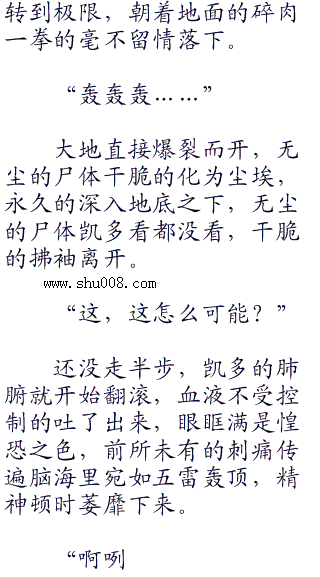 转到极限，朝着地面的碎肉
一拳的毫不留情落下。
“轰轰轰……”
大地直接爆裂而开，无
尘的尸体干脆的化为尘埃，
永久的深入地底之下，无尘
的尸体凯多看都没看，干脆
的拂袖离开。
www.shu008.com
“这，这怎么可能？”
还没走半步，凯多的肺
腑就开始翻滚，血液不受控
制的吐了出来，眼眶满是惶
恐之色，前所未有的刺痛传
遍脑海里宛如五雷轰顶，精
神顿时萎靡下来。
“啊咧